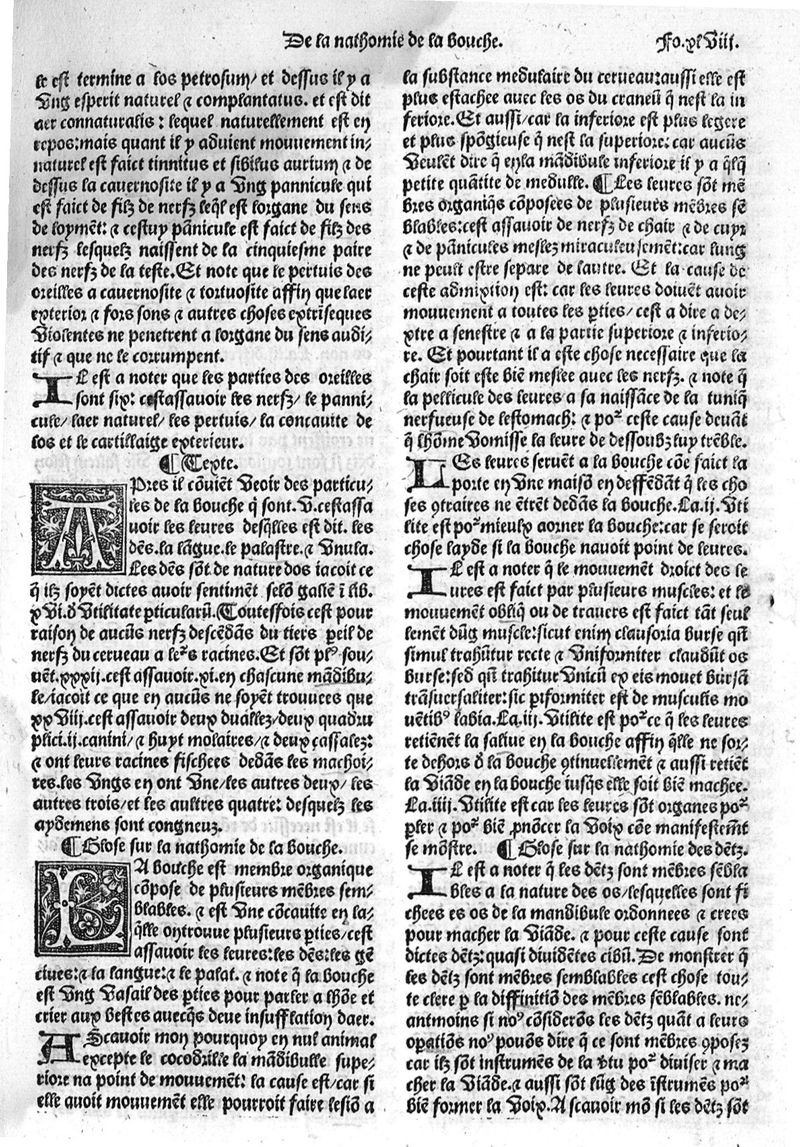 De la nathomie de la bouche.
Fo.xlviij.
le est termine a los petrosum/ et dessus il y a
vng esperit naturel ⁊ complantatus. et est dit
aer connaturalis: lequel naturellement est en
repos: mais quant il y aduient mouuement in⸗
naturel est faict tinnitus et sibilus aurium ⁊ de
dessus la cauernosite il y a vng pannicule qui
est faict de filz de nerfz leq̄l est lorgane du sens
de loyment: ⁊ cestuy pānicule est faict de filz des
nerfz lesquelz naissent de la cinquiesme paire
des nerfz de la teste. Et note que le pertuis des
oreilles a cauernosite ⁊ tortuosite affin que laer
exterior ⁊ fors sons ⁊ autres choses extrīseques
violentes ne penetrent a lorgane du sens audi⸗
tif ⁊ que ne le corrumpent.
IL est a noter que les parties des oreilles
sont six: cestassauoir les nerfz/ le panni⸗
cule/ laer naturel/ les pertuis/ la concauite de
los et le cartillaige exterieur.
¶ Texte.
APres il cōuiēt veoir des particu⸗
les de la bouche q̄ sont. v. cestassa
uoir les leures desq̄lles est dit. les
dēs. la lāgue. le palastre. ⁊ vuula.
Les dēs sōt de nature dos iacoit ce
q̄ ilz soyēt dictes auoir sentimēt selō galiē ī lib.
xvi. ō vtilitate ꝑticularū. Toutesfois cest pour
raison de aucūs nerfz descēdās du tiers ꝑeil de
nerfz du cerueau a leꝛˢ racines. Et sōt plꝰ sou⸗
uēt. xxxij. cest assauoir. xi. en chascune mādibu⸗
le/ iacoit ce que en aucūs ne soyēt trouuees que
xxviij. cest assauoir deux duallez/ deux quadru
plici. ij. canini/ ⁊ huyt molaires/ ⁊ deux cassalez:
⁊ ont leurs racines fischees dedās les machoi⸗
res. les vngs en ont vne/ les autres deux/ les
autres trois/ et les aultres quatre: desquelz les
aydemens sont congneuz.
¶ Glose sur la nathomie de la bouche.
LA bouche est membre organique
cōpose de plusieurs mēbres sem⸗
blables. ⁊ est vne cōcauite en la⸗
q̄lle on trouue plusieurs ꝑties/ cest
assauoir les leures: les dēs: les gē
ciues: ⁊ la langue: ⁊ le palat. ⁊ note q̄ la bouche
est vng vasail des ꝑties pour parler a lhōe et
crier aux bestes auecq̄s deue insufflation daer.
AScauoir mon pourquoy en nul animal
excepte le cocodrille la mādibulle supe⸗
riore na point de mouuemēt: la cause est/ car si
elle auoit mouuemēt elle pourroit faire lesiō a
la substance medulaire du cerueau: aussi elle est
plus estachee auec les os du craneū q̄ nest la in
feriore. Et aussi/ car la inferiore est plus legere
et plus spōgieuse q̄ nest la superiore: car aucūs
veulēt dire q̄ en la mādibule inferiore il y a q̄lq̄
petite quātite de medulle. ¶ Les leures sōt mē
bres organiq̄s cōposees de plusieurs mēbres sē
blables: cest assauoir de nerfz de chair ⁊ de cuyr
⁊ de pānicules meslez miraculeusemēt: car lung
ne peult estre separe de lautre. Et la cause de
ceste admixtion est: car les leures doiuēt auoir
mouuemēt a toutes les ꝑties/ cest a dire a de⸗
xtre a senestre ⁊ a la partie superiore ⁊ inferio⸗
re. Et pourtant il a este chose necessaire que la
chair soit este biē meslee auec les nerfz. ⁊ note q̄
la pellicule des leures a sa naissāce de la tuniq̄
nerfueuse de lestomach: ⁊ poꝛ ceste cause deuāt
q̄ lhōme vomisse la leure de dessoubz luy trēble.
LEs leures seruēt a la bouche cōe faict la
porte en vne maisō en deffēdāt q̄ les cho
ses ꝯtraires ne ētrēt dedās la bouche. La. ij. vti
lite est poꝛ mieulx aorner la bouche: car se seroit
chose layde si la bouche nauoit point de leures.
IL est a noter q̄ le mouuemēt droict des le
ures est faict par plusieurs muscles: et le
mouuement obliq̄ ou de trauers est faict tāt seul
lemēt dūg muscle: sicut enim clausoria burse qn̄
simul trahūtur recte ⁊ vniformiter claudūt os
burse: sed qn̄ trahitur vnicū ex eis mouet bursā
trāsuersaliter: sic ꝑiformiter est de musculis mo
uētibꝰ labia. La. iij. vtilite est poꝛ ce q̄ les leures
retiēnēt la saliue en la bouche affin q̄lle ne sor⸗
te dehors ō la bouche ꝯtinuellemēt ⁊ aussi retiēt
la viāde en la bouche iusq̄s elle soit biē machee.
La. iiij. vtilite est car les leures sōt organes poꝛ
ꝑler ⁊ poꝛ biē ꝓnōcer la voix cōe manifestemēt
se mōstre. ¶ Glose sur la nathomie des dētz.
IL est a noter q̄ les dētz sont mēbres sēbla
bles a la nature des os/ lesquelles sont fi
chees es os de la mandibule ordonnees ⁊ crees
pour macher la viāde. ⁊ pour ceste cause sont
dictes dētz: quasi diuidētes cibū. De monstrer q̄
les dētz sont mēbres semblables cest chose tou⸗
te clere ꝑ la diffinitiō des mēbres sēblables. ne⸗
antmoins si noꝰ cōsiderōs les dētz quāt a leurs
oꝑatiōs noꝰ pouōs dire q̄ ce sont mēbres ꝯposez
car ilz sōt instrumēs de la v̄tu poꝛ diuiser ⁊ ma
cher la viāde. ⁊ aussi sōt lūg des īstrumēs poꝛ
biē former la voix. Ascauoir mō si les dētz sōt